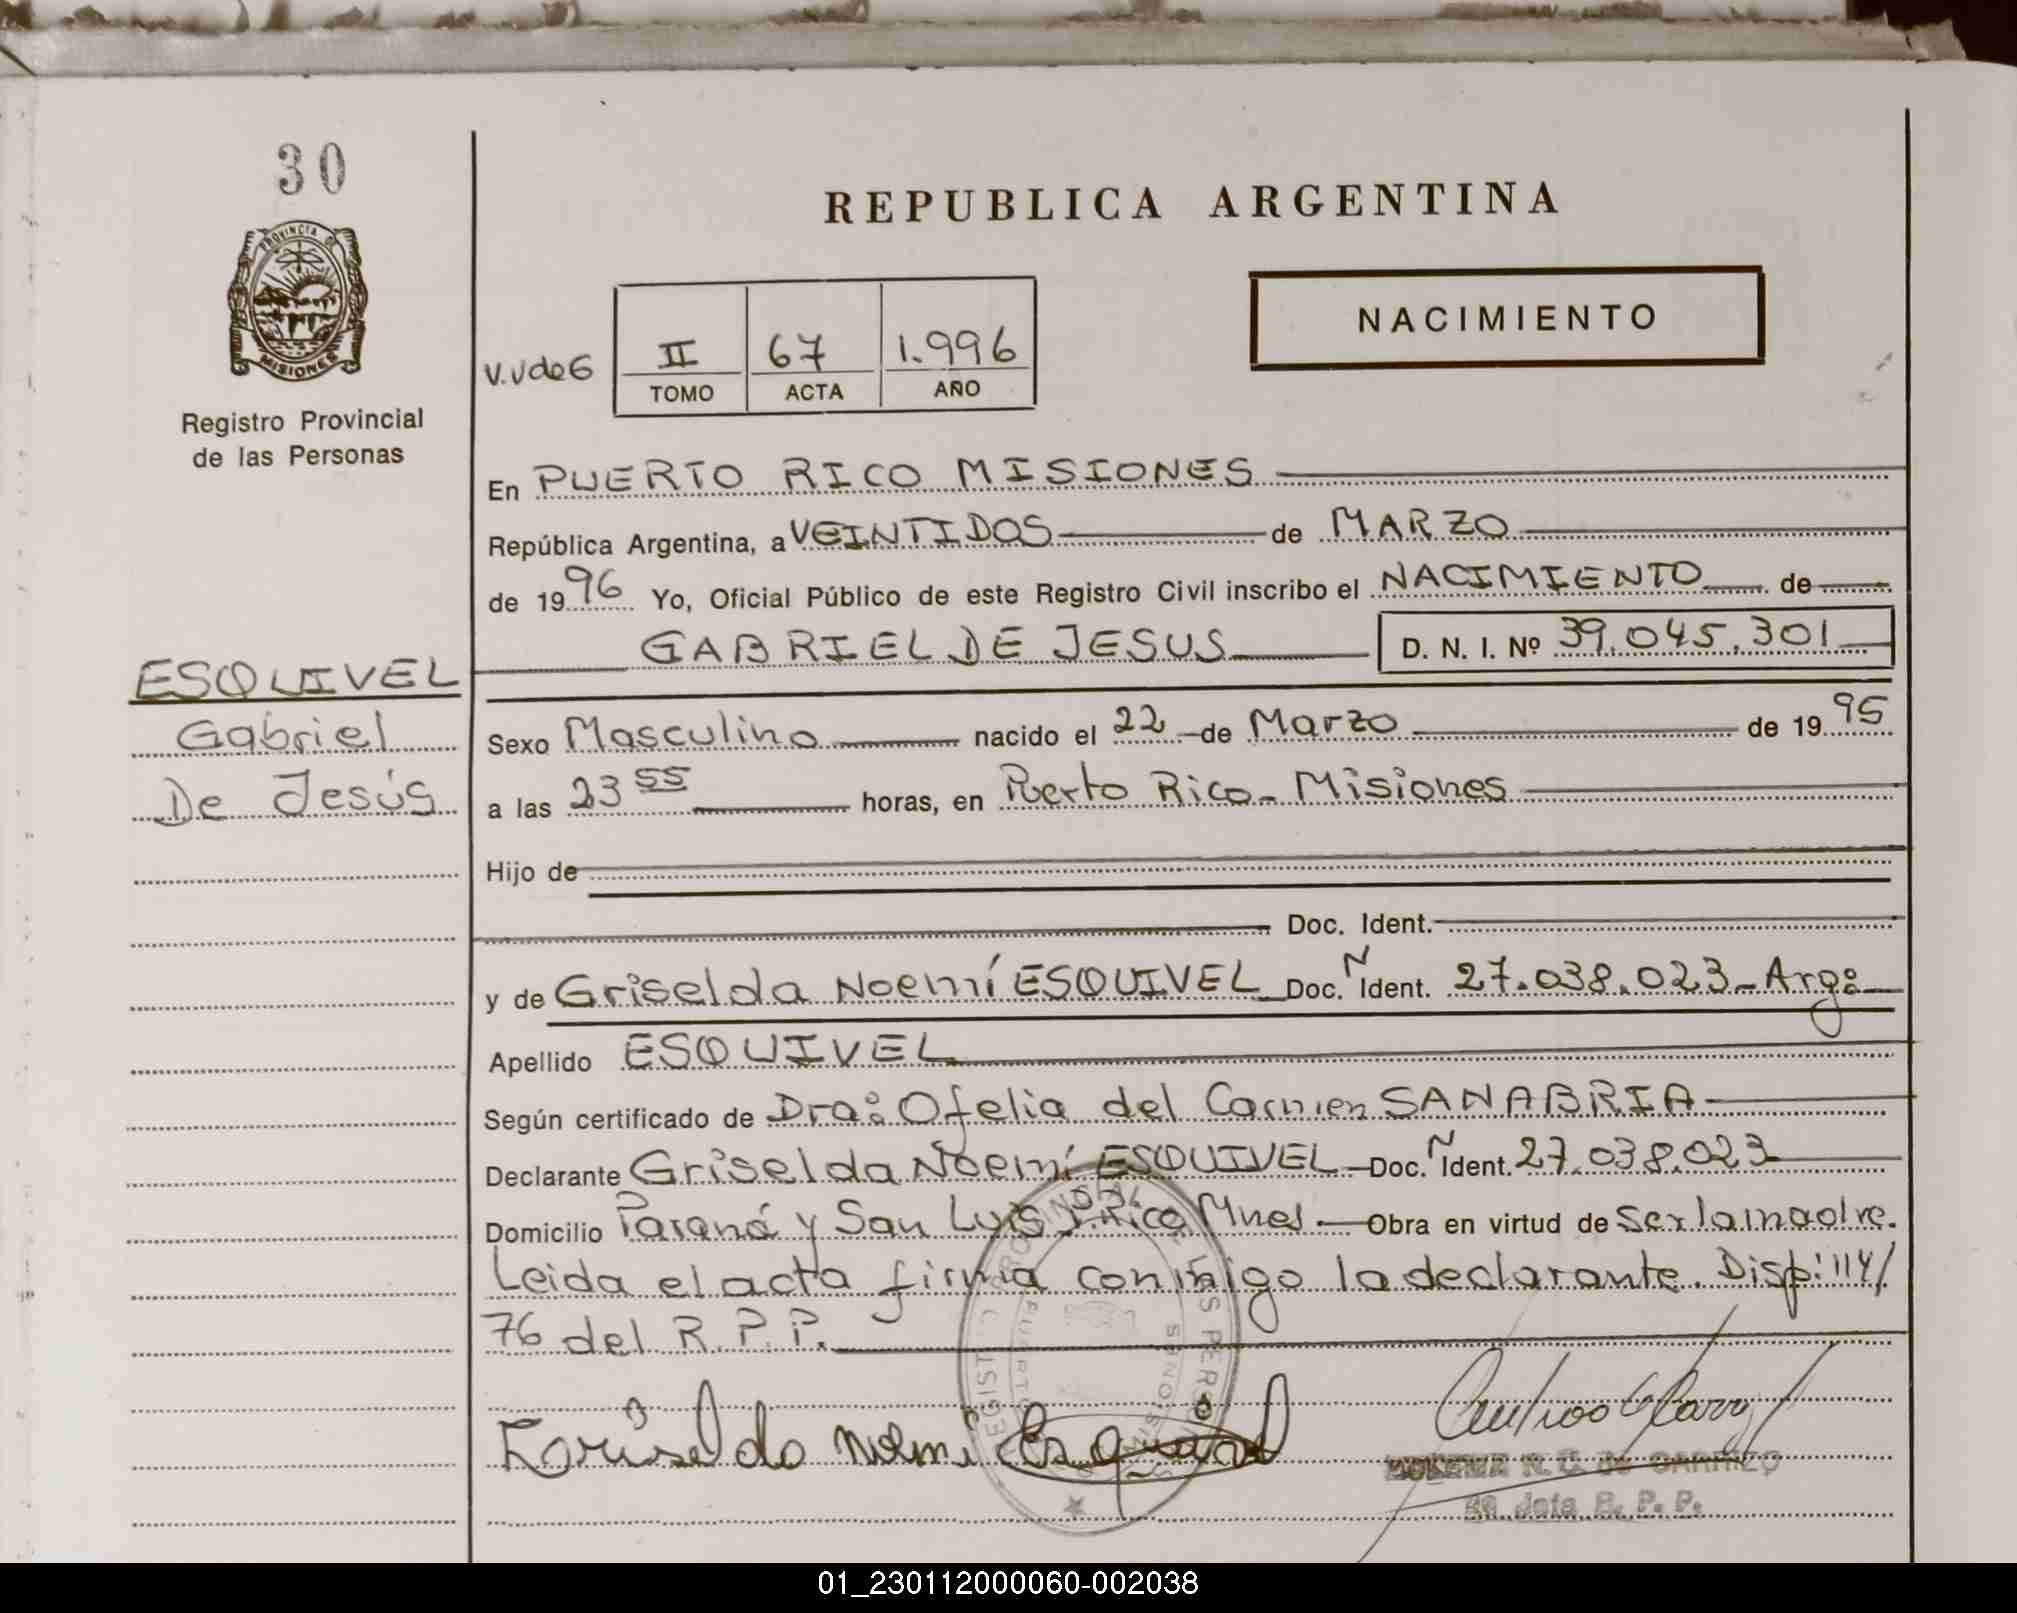 30
PROVINCIA DE
MISIONES
Registro Provincial
de las Personas
ESQUIVEL
Gabriel
De Jesús
REPUBLICA ARGENTINA
NACIMIENTO
V.V de G
II 67 1.996
TOMO ACTA AÑO
En PUERTO RICO MISIONES
República Argentina, a VEINTIDOS de MARZO
de 1996 Yo, Oficial Público de este Registro Civil inscribo el NACIMIENTO de
GABRIEL DE JESUS D. N. I. Nº 39.045.301
Sexo Masculino nacido el 22 de Marzo de 1995
a las 23 55 horas, en Puerto Rico - Misiones
Hijo de
Doc. Ident.
y de Griselda Noemí ESQUIVEL Doc. N Ident. 27.038.023 - Arg:
Apellido ESQUIVEL
Según certificado de Dra: Ofelia del Carmen SANABRIA
Declarante Griselda Noemí ESQUIVEL Doc. N Ident. 27.038.023
Domicilio Paraná y San Luis P. Rico Mnes. Obra en virtud de Ser la madre.
Leida el acta firma conmigo la declarante. Disp: 114/
76 del R. P. P.
Griselda Noemi Esquivel
R. C. de CARRIZO
Jefa R. P. P.
01_230112000060-002038